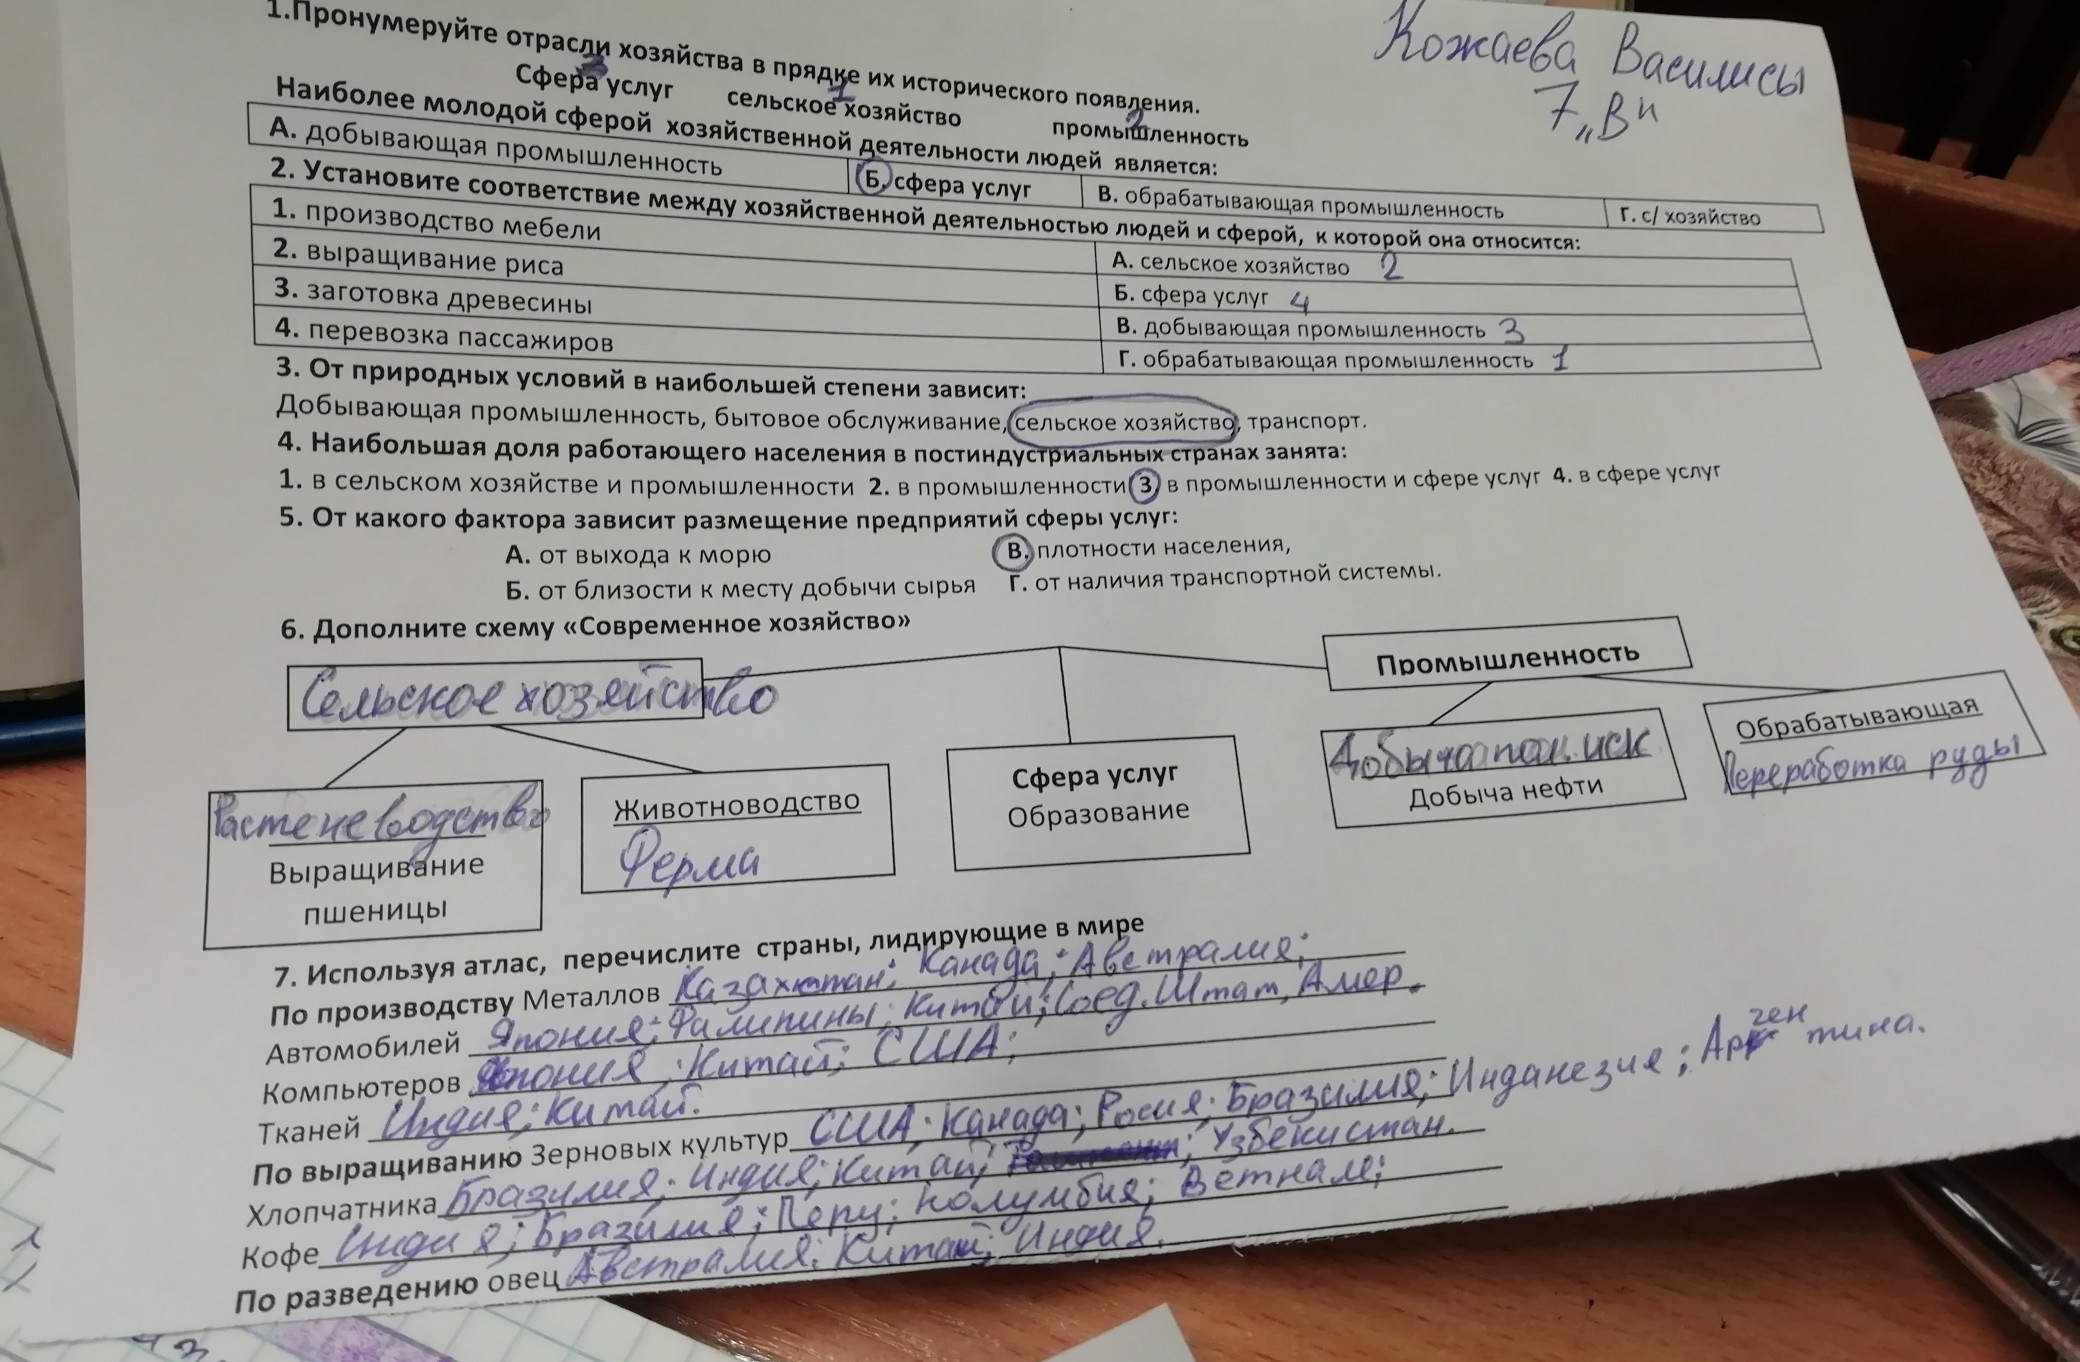 1.Пронумеруйте отрасли хозяйства в прядке их исторического появления.
Кожаева Василисы
7 „В"
Сфера услуг 3 сельское хозяйство 1 промышленность 2
Наиболее молодой сферой хозяйственной деятельности людей является:
А. добывающая промышленность Б. сфера услуг В. обрабатывающая промышленность Г. с/ хозяйство
2. Установите соответствие между хозяйственной деятельностью людей и сферой, к которой она относится:
1. производство мебели А. сельское хозяйство 2
2. выращивание риса Б. сфера услуг 4
3. заготовка древесины В. добывающая промышленность 3
4. перевозка пассажиров Г. обрабатывающая промышленность 1
3. От природных условий в наибольшей степени зависит:
Добывающая промышленность, бытовое обслуживание, сельское хозяйство, транспорт.
4. Наибольшая доля работающего населения в постиндустриальных странах занята:
1. в сельском хозяйстве и промышленности 2. в промышленности 3. в промышленности и сфере услуг 4. в сфере услуг
5. От какого фактора зависит размещение предприятий сферы услуг:
А. от выхода к морю В. плотности населения,
Б. от близости к месту добычи сырья Г. от наличия транспортной системы.
6. Дополните схему «Современное хозяйство»
Сельское хозяйство Промышленность
Растеневодство
Выращивание
пшеницы
Животноводство
Ферма
Сфера услуг
Образование
Добыча пол. иск
Добыча нефти
Обрабатывающая
Переработка руды
7. Используя атлас, перечислите страны, лидирующие в мире
По производству Металлов Казахстан; Канада; Австралия;
Автомобилей Япония; Филипины; Китай; Соед. Штат, Амер.
Компьютеров Япония; Китай; США;
Тканей Индия; Китай.
По выращиванию Зерновых культур США; Канада; Росия; Бразилия; Инданезия; Аргентина.
Хлопчатника Бразилия; Индия; Китай; Узбекистан.
Кофе Индия; Бразилия; Перу; Колумбия; Ветнам;
По разведению овец Австралия; Китай; Индия.